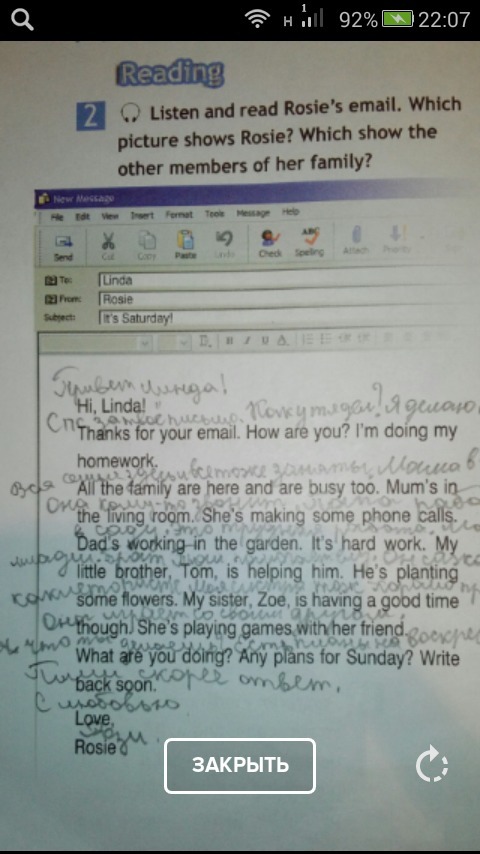 H 1 92% 22:07
Reading
2 Listen and read Rosie's email. Which
picture shows Rosie? Which show the
other members of her family?
New Message
File Edit View Insert Format Tools Message Help
Send Cut Copy Paste Undo Check Spelling Attach Priority
To: Linda
From: Rosie
Subject: It's Saturday!
B I U A
Привет Линда!
Hi, Linda!
Спс за твое письмо. Как у тя дел? Я делаю
Thanks for your email. How are you? I'm doing my
homework.
Вся семья здесь и все тоже заняты, Мама в
All the family are here and are busy too. Mum's in
Она кому-то звонит
the living room. She's making some phone calls.
в саду. это
Dad's working in the garden. It's hard work. My
брат Том
little brother, Tom, is helping him. He's planting
some flowers. My sister, Zoe, is having a good time
Она играет со своим другом
though. She's playing games with her friend.
что ты делаешь? Есть планы на воскрес
What are you doing? Any plans for Sunday? Write
Пиши скорее ответ.
back soon.
С любовью
Love,
Рози.
Rosie
ЗАКРЫТЬ